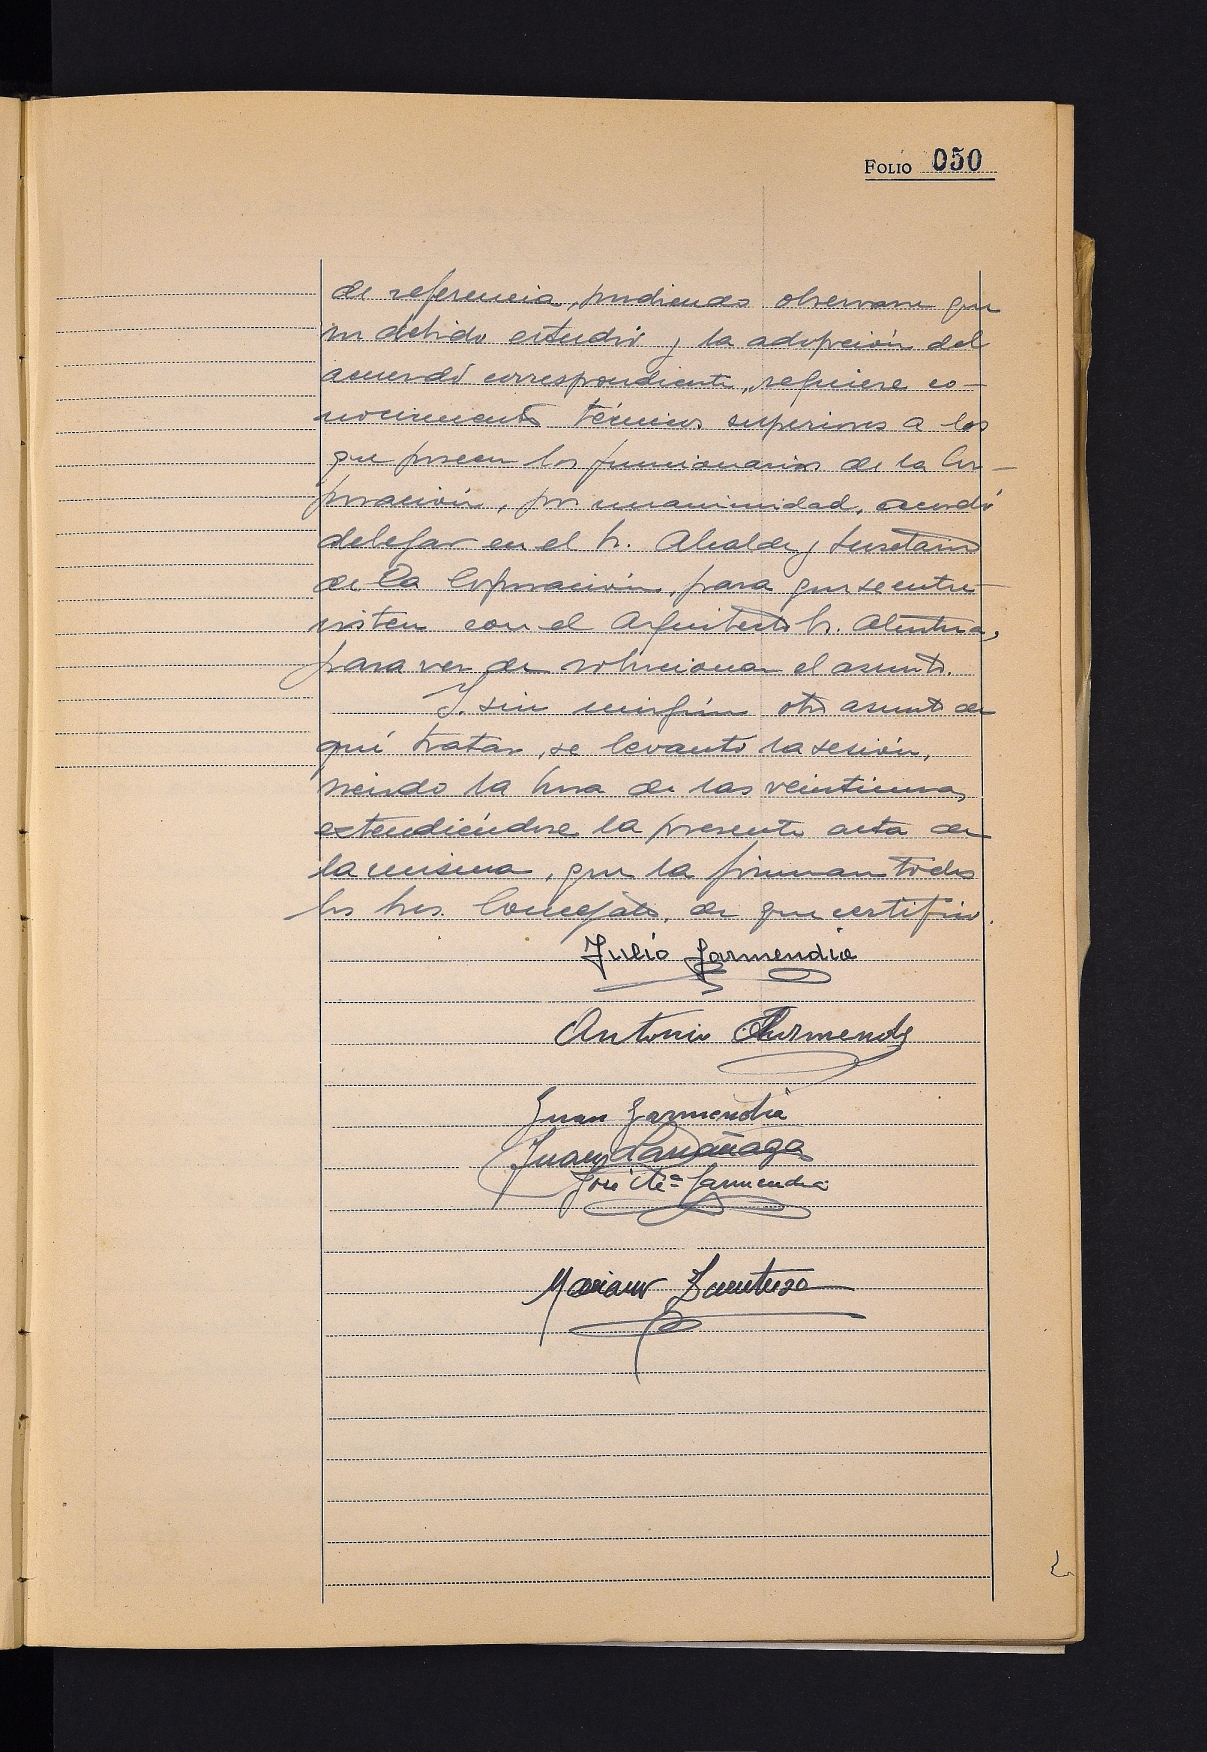 FOLIO 050
de referencia, pudiendo observarse que
su debido estudio y la adopción del
acuerdo correspondiente, requiere co-
nocimientos técnicos superiores a los
que poseen los funcionarios de la Cor-
poración, por unanimidad, acordó
delegar en el Sr. Alcalde y Secretario
de la Corporación, para que se entre-
visten con el Arquitecto Sr.
para ver de solucionar el asunto.
Y sin ningún otro asunto de
qué tratar, se levantó la sesión,
siendo la hora de las veintiuna,
extendiéndose la presente acta de
la misma, que la firman todos
los Sres. Concejales, de que certifico.
Julio Garmendia
Antonio
Juan Garmendia
Juan Larrañaga
José Mª Garmendia
Mariano